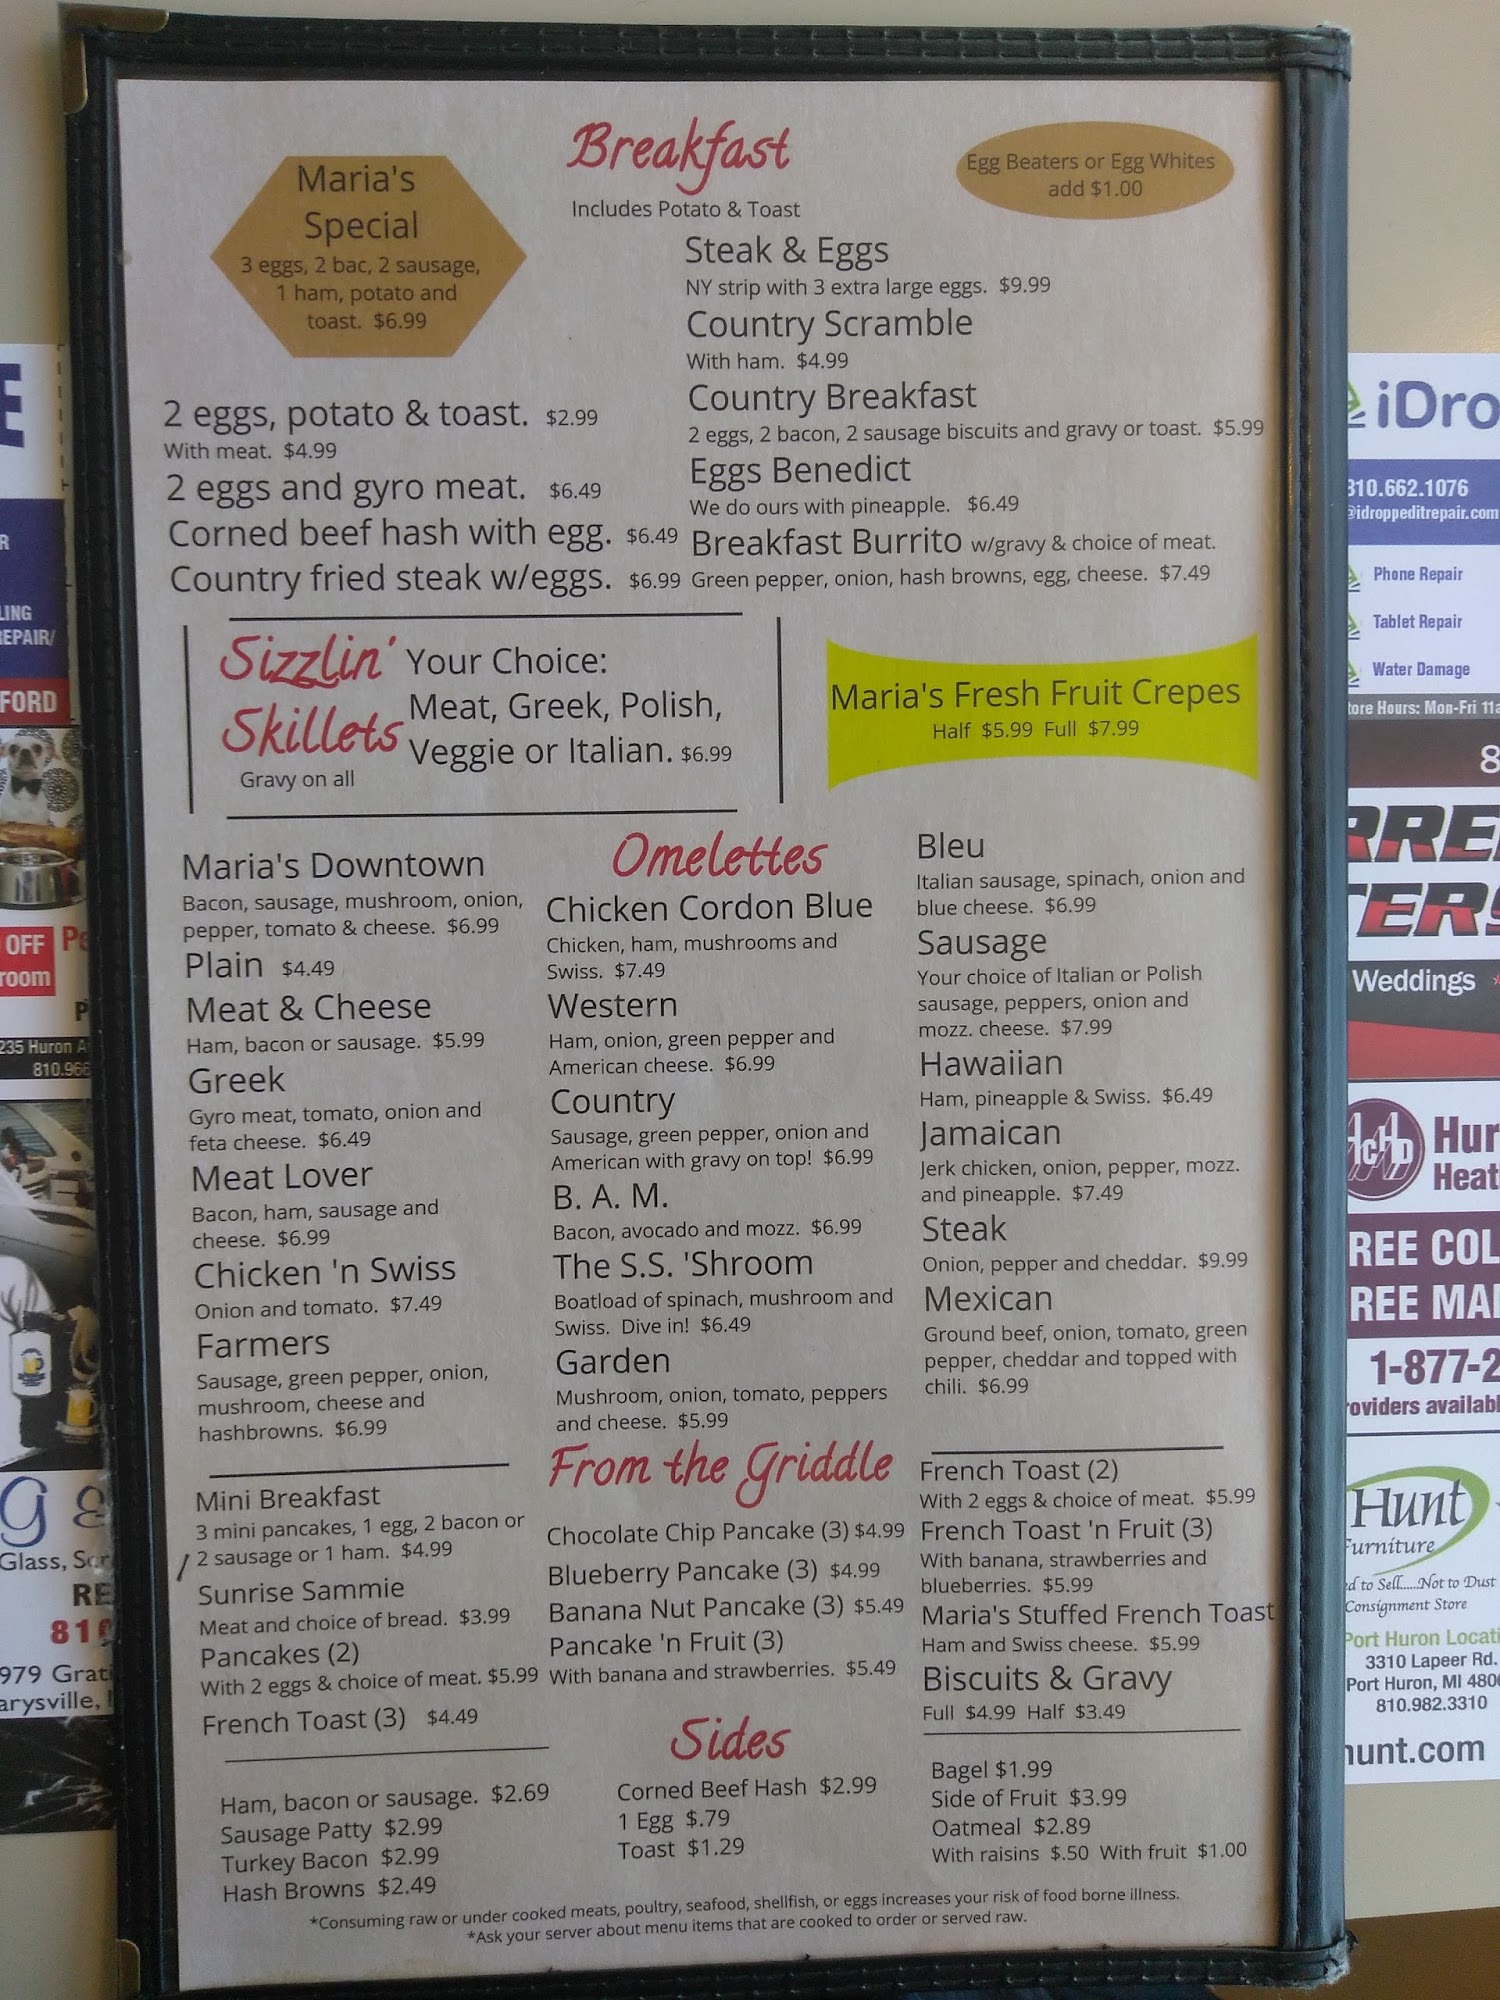 Breakfast
Includes Potato & Toast
Egg Beaters or Egg Whites
add $1.00
Maria's
Special
3 eggs, 2 bac, 2 sausage,
1 ham, potato and
toast. $6.99
2 eggs, potato & toast. $2.99
With meat. $4.99
2 eggs and gyro meat. $6.49
Corned beef hash with egg. $6.49
Country fried steak w/eggs. $6.99
Steak & Eggs
NY strip with 3 extra large eggs. $9.99
Country Scramble
With ham. $4.99
Country Breakfast
2 eggs, 2 bacon, 2 sausage biscuits and gravy or toast. $5.99
Eggs Benedict
We do ours with pineapple. $6.49
Breakfast Burrito w/gravy & choice of meat.
Green pepper, onion, hash browns, egg, cheese. $7.49
Sizzlin'
Skillets
Gravy on all
Your Choice:
Meat, Greek, Polish,
Veggie or Italian. $6.99
Maria's Fresh Fruit Crepes
Half $5.99 Full $7.99
Omelettes
Maria's Downtown
Bacon, sausage, mushroom, onion,
pepper, tomato & cheese. $6.99
Plain $4.49
Meat & Cheese
Ham, bacon or sausage. $5.99
Greek
Gyro meat, tomato, onion and
feta cheese. $6.49
Meat Lover
Bacon, ham, sausage and
cheese. $6.99
Chicken 'n Swiss
Onion and tomato. $7.49
Farmers
Sausage, green pepper, onion,
mushroom, cheese and
hashbrowns. $6.99
Chicken Cordon Blue
Chicken, ham, mushrooms and
Swiss. $7.49
Western
Ham, onion, green pepper and
American cheese. $6.99
Country
Sausage, green pepper, onion and
American with gravy on top! $6.99
B. A. M.
Bacon, avocado and mozz. $6.99
The S.S. 'Shroom
Boatload of spinach, mushroom and
Swiss. Dive in! $6.49
Garden
Mushroom, onion, tomato, peppers
and cheese. $5.99
Bleu
Italian sausage, spinach, onion and
blue cheese. $6.99
Sausage
Your choice of Italian or Polish
sausage, peppers, onion and
mozz. cheese. $7.99
Hawaiian
Ham, pineapple & Swiss. $6.49
Jamaican
Jerk chicken, onion, pepper, mozz.
and pineapple. $7.49
Steak
Onion, pepper and cheddar. $9.99
Mexican
Ground beef, onion, tomato, green
pepper, cheddar and topped with
chili. $6.99
From the Griddle
Mini Breakfast
3 mini pancakes, 1 egg, 2 bacon or
2 sausage or 1 ham. $4.99
Sunrise Sammie
Meat and choice of bread. $3.99
Pancakes (2)
With 2 eggs & choice of meat. $5.99
French Toast (3) $4.49
Chocolate Chip Pancake (3) $4.99
Blueberry Pancake (3) $4.99
Banana Nut Pancake (3) $5.49
Pancake 'n Fruit (3)
With banana and strawberries. $5.49
French Toast (2)
With 2 eggs & choice of meat. $5.99
French Toast 'n Fruit (3)
With banana, strawberries and
blueberries. $5.99
Maria's Stuffed French Toast
Ham and Swiss cheese. $5.99
Biscuits & Gravy
Full $4.99 Half $3.49
Sides
Ham, bacon or sausage. $2.69
Sausage Patty $2.99
Turkey Bacon $2.99
Hash Browns $2.49
Corned Beef Hash $2.99
1 Egg $.79
Toast $1.29
Bagel $1.99
Side of Fruit $3.99
Oatmeal $2.89
With raisins $.50 With fruit $1.00
*Consuming raw or under cooked meats, poultry, seafood, shellfish, or eggs increases your risk of food borne illness.
*Ask your server about menu items that are cooked to order or served raw.
FORD
OFF
room
235 Huron
810.966
Glass,
810
979
iDro
810.662.1076
@idroppeditrepair.com
Phone Repair
Tablet Repair
Water Damage
Hours: Mon-Fri
Weddings
HCHD
Hur
Heat
1-877-2
Hunt
Furniture
to Sell.....Not to Dust
Consignment Store
Port Huron
3310 Lapeer Rd.
Port Huron, MI
810.982.3310
hunt.com